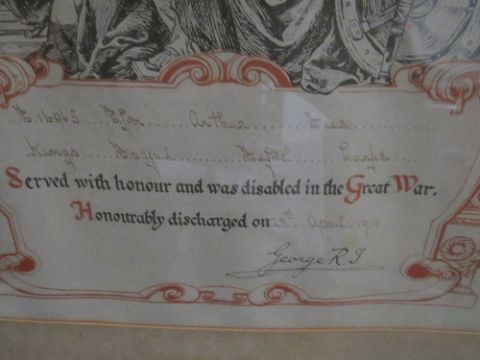 Arthur
Kings Royal Rifle Corps
Served with honour and was disabled in the Great War.
Honourably discharged on April 1918
George R.I